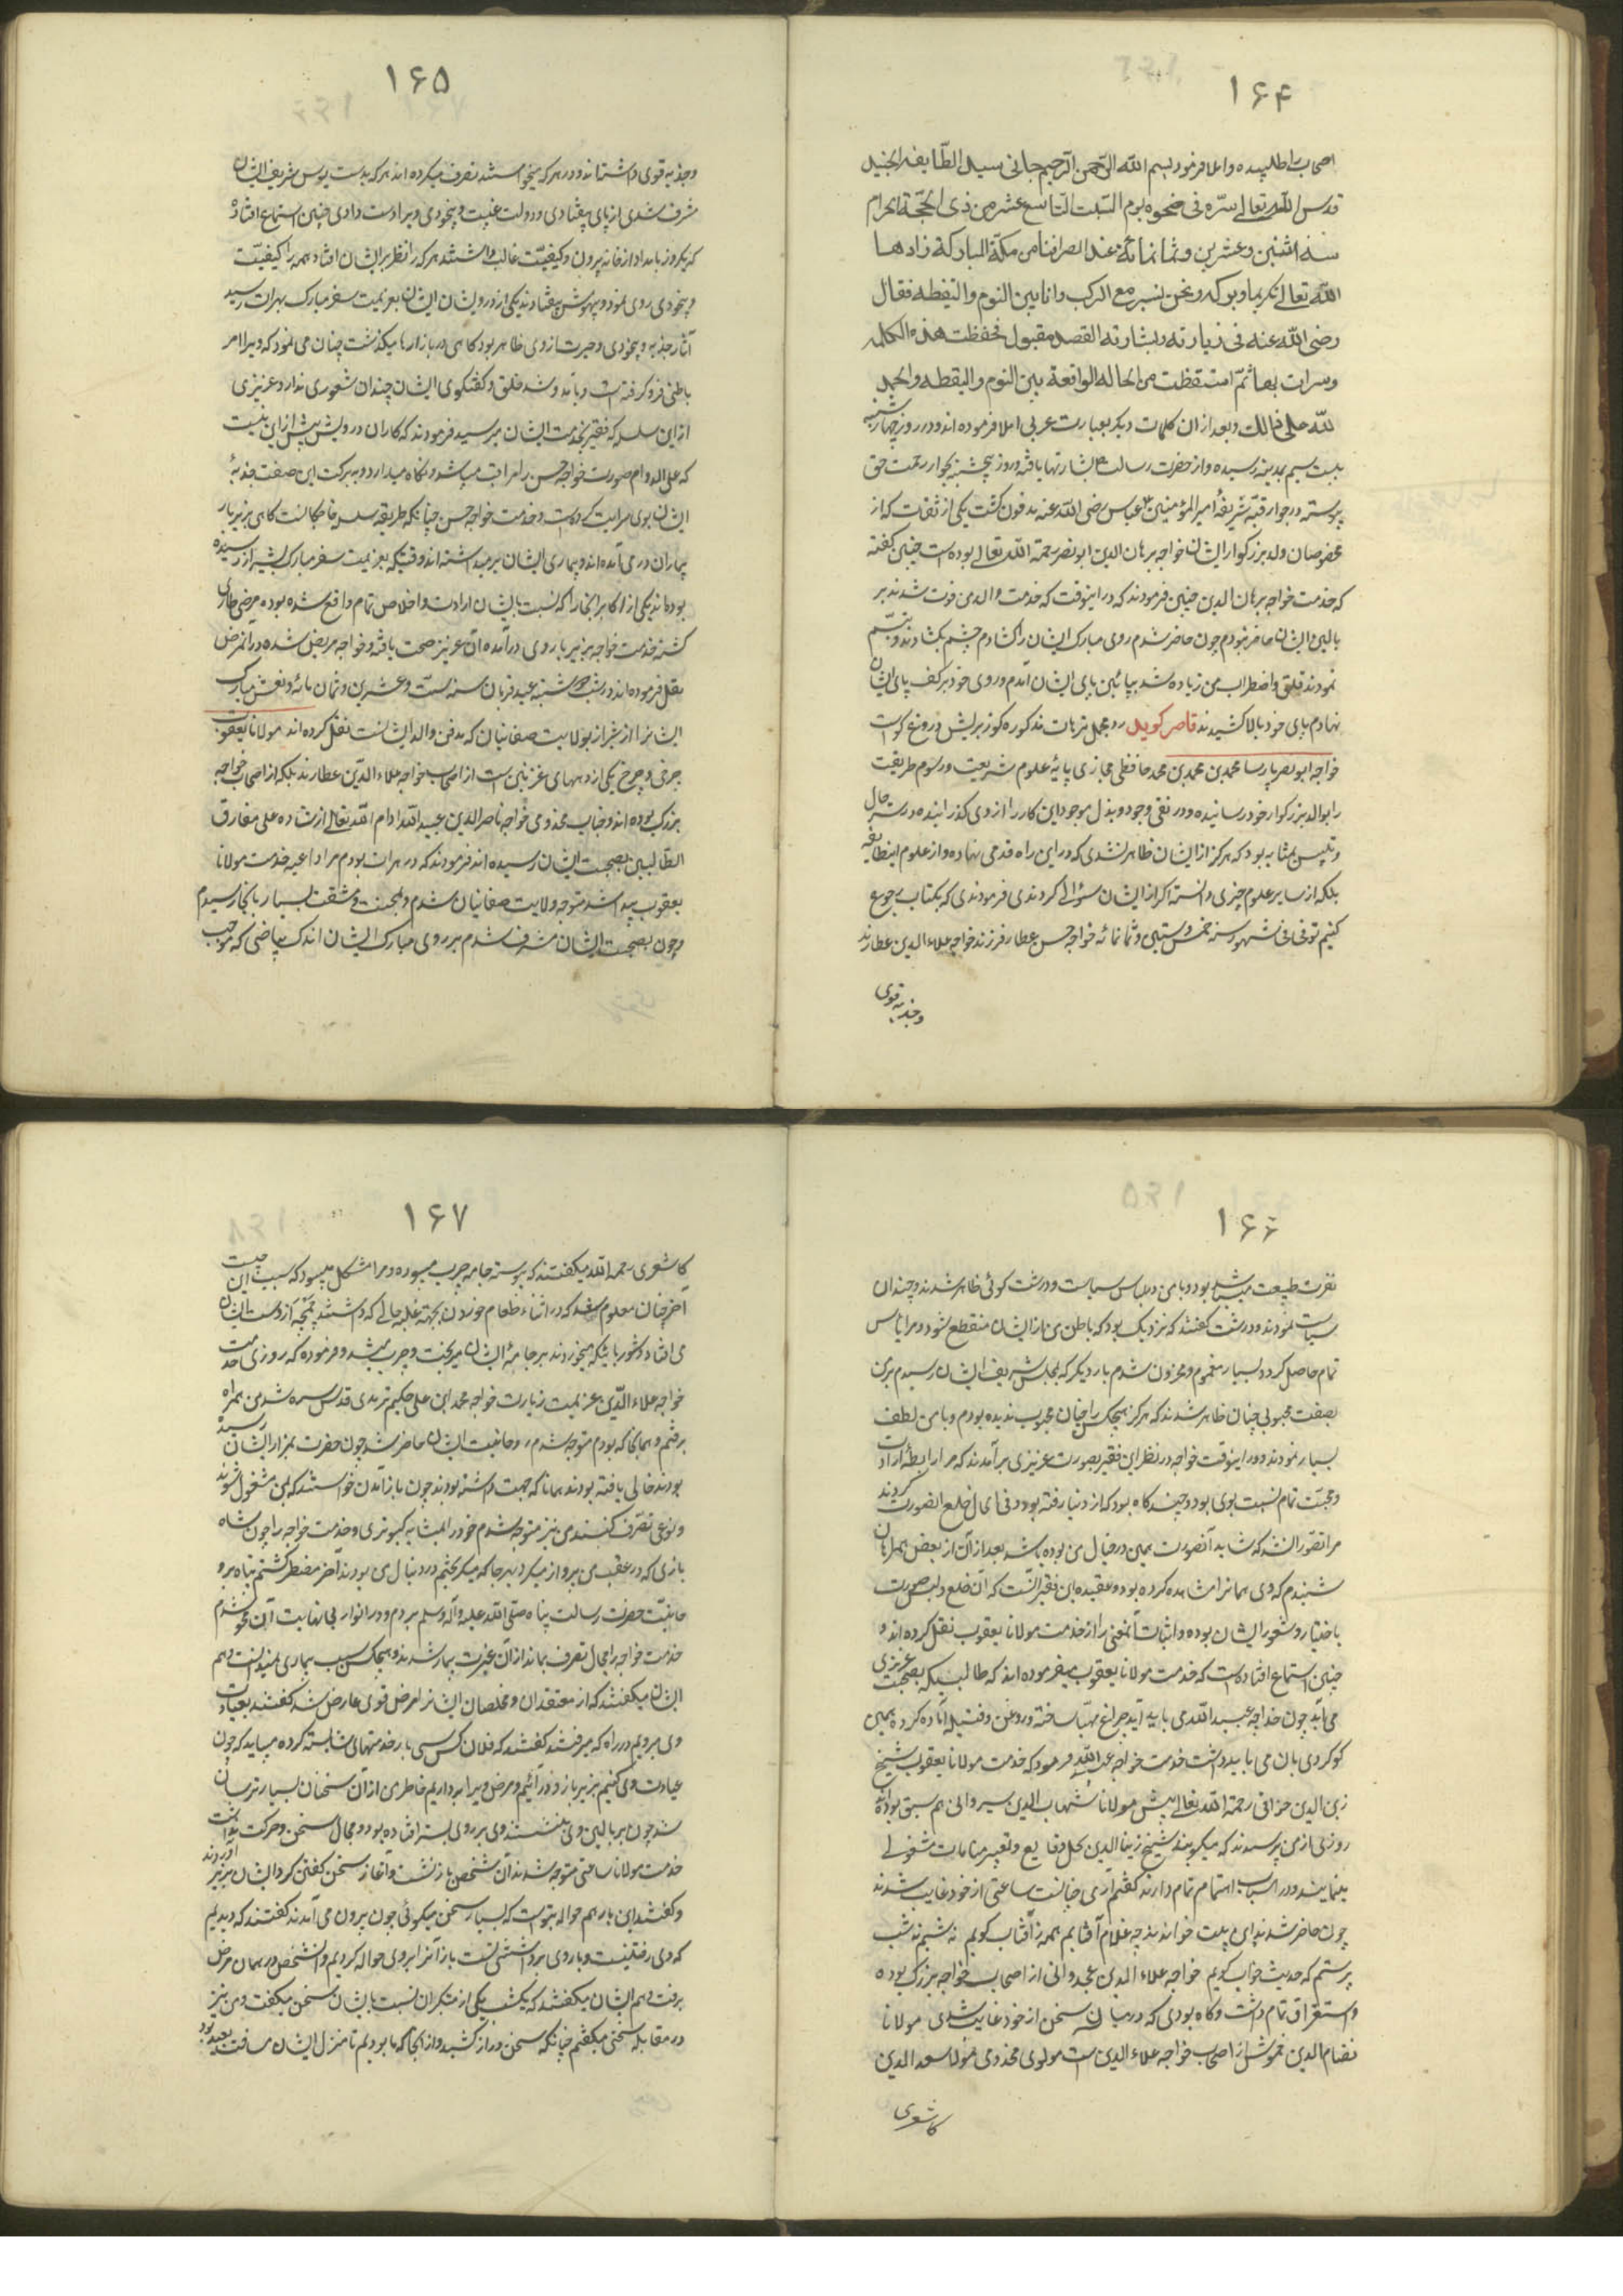 ۱۶۴
اصحاب را طلبیده و املا فرمود بسم الله الرحمن الرحیم جانی سید الطایفه الجنید
قدس الله تعالی سره فی ضحوه یوم السبت التاسع عشر من ذی الحجّة الحرام
سنه اثنین و عشرین و ثمانمائة عند انصرافنا من مکة المبارکة زادها
الله تعالی تکریما و برکه و نحن نسیر مع الرکب و انا بین النوم و الیقظه فقال
رضی الله عنه فی زیارته و بشارته القصد مقبول فحفظت هذه الکلمه
و سررت بها ثمّ استیقظت من الحاله الواقعة بین النوم و الیقظه و الحمد
لله علی ذالک و بعد از ان کلمات دیگر بعبارت عربی املا فرموده اند و در روز چهارشنبه
بیست سیم بمدینه رسیده و از حضرت رسالت ص بشارتها یافته و روز پنجشنبه بجوار رحمت حق
پیوسته در جوار قبّه شریفهٔ امیر المؤمنین عباس رضی الله عنه مدفون گشت یکی از ثقات که از
مخصوصان ولد بزرگوار ایشان خواجه برهان الدین ابو نصر رحمة الله تعالی بوده است چنین گفته
که خدمت خواجه برهان الدین چنین فرمودند که در اینوقت که خدمت والد من فوت شدند بر
بالین ایشان حاضر نبودم چون حاضر شدم روی مبارک ایشان را گشادم چشم بگشادند و تبسّم
نمودند قلق و اضطراب من زیاده شد بپائین پای ایشان آمدم و روی خود بر کف پای ایشان
نهادم پای خود بالا کشیدند قاصر گوید رد مجمل ترهات مذکوره کوز بریش دروغ گو است
خواجه ابو نصر پارسا محمد بن محمد بن محمد حافظی بخاری پایهٔ علوم شریعت و رسوم طریقت
را بوالد بزرگوار خود رسانیده و در نفی وجود و بذل موجود این کار را از وی گذرانیده در ستر حال
و تلبیس بمثابه بود که هرگز از ایشان ظاهر نشدی که در این راه قدمی نهاده و از علوم اینطایفه
بلکه از سایر علوم چیزی دانسته اگر از ایشان سؤالی کردندی فرمودندی که بکتاب رجوع
کنیم توفی فی شهور سنه خمس و ستین و ثمانمائه خواجه حسن عطار فرزند خواجه علاء الدین عطارند
و جذبه قوی
۱۶۵
و جذبه قوی داشته‌اند و در هر که میخواستند تصرف میکرده اند هر که بدست بوس شریف ایشان
مشرف شدی از پای بیفتادی و دولت غیبت و بیخودی ویرا دست دادی چنین استماع افتاده
که یکروز بامداد از خانه بیرون و کیفیّت غالب داشتند هر که را نظر بر ایشان افتاد همه را کیفیّت
و بیخودی روی نمود و بیهوش بیفتادند یکی از درویشان ایشان بعزیمت سفر مبارک بهرات رسید
آثار جذبه و بیخودی و حیرت از وی ظاهر بود گاهی در بازارها میگذشت چنان می نمود که ویرا امر
باطنی فرو گرفته است و بآمد و شد خلق و گفتگوی ایشان چندان شعوری ندارد عزیزی
از این سلسله که فقیر بخدمت ایشان میرسید فرمودند که کار ان درویش بیش از این نیست
که علی الدوام صورت خواجه حسن را مراقب میباشد و نگاه میدارد و ببرکت این صفت جذبهٔ
ایشان بوی سرایت کرده است و خدمت خواجه حسن چنانکه طریقه سلسله خواجگانست گاهی بزیر بار
بیماران درمی‌آمده اند و بیماری ایشان برمیداشته اند وقتیکه بعزیمت سفر مبارک بشیراز رسیده
بوده‌اند یکی از اکابر انجا را که نسبت بایشان ارادت و اخلاص تمام واقع شده بوده مرضی طاری
گشته خدمت خواجه بزیر بار وی درآمده آن عزیز صحت یافته و خواجه مریض شده در آنمرض
نقل فرموده اند در شب دوشنبه عید قربان سنه ست و عشرین و ثمان مائه و نعش مبارک
ایشانرا از شیراز بولایت صغانیان که مدفن والد ایشانست نقل کرده اند مولانا یعقوب
چرخی و چرخ یکی از دیههای غزنین است از اصحاب خواجه علاء الدّین عطارند بلکه از اصحاب خواجه
بزرگ بوده اند و جناب مخدومی خواجه ناصر الدین عبید الله ادام الله تعالی ارشاده علی مفارق
الطالبین بصحبت ایشان رسیده اند فرمودند که در هرات بودم مرا داعیه خدمت مولانا
یعقوب پیدا شد متوجه ولایت صغانیان شدم و بمحنت و مشقت بسیار بانجا رسیدم
و چون بصحبت ایشان مشرف شدم بر روی مبارک ایشان اندک بیاضی که موجب
۱۶۶
نفرت طبیعت میباشد بود و با من در لباس سیاست و درشت گوئی ظاهر شدند و چندان
سیاست نمودند و درشت گفتند که نزدیک بود که باطن من از ایشان منقطع شود و مرا یاس
تمام حاصل کرد و بسیار مغموم و محزون شدم بار دیگر که بمجلس شریف ایشان رسیدم بر من
بصفت محبوبی چنان ظاهر شدند که هرگز هیچکس را چنان محبوب ندیده بودم و با من لطف
بسیار نمودند و در اینوقت خواجه در نظر این فقیر بصورت عزیزی برآمدند که مرا رابطهٔ ارادت
و محبّت تمام نسبت بوی بود و چندگاه بود که از دنیا رفته بود و فی الحال خلع انصورت کردند
مرا تصوّر انشد که شاید آنصورت همین در خیال من بوده باشد بعد از آن از بعض همراهان
شنیدم که وی همانرا مشاهده کرده بود و عقیده این فقیر انست که آن خلع و لبس صورت
باختیار و شعور ایشان بوده و اثبات اینمعنی را از خدمت مولانا یعقوب نقل کرده اند و
چنین استماع افتاده است که خدمت مولانا یعقوب میفرموده اند که طالبیکه بصحبت عزیزی
می‌آید چون خواجه عبید الله می باید آید چراغ مهیّا ساخته و روغن و فتیله آماده کرده همین
گوگردی بان می باید داشت خدمت خواجه عبد الله فرمود که خدمت مولانا یعقوب و شیخ
زین الدین خوافی رحمة الله تعالی پیش مولانا شهاب الدین سیرامی هم سبق بوده اند
روزی از من پرسیدند که میگویند شیخ زین الدین بحل وقایع و تعبیر منامات مشغولی
مینمایند و در اسباب اهتمام تمام دارند گفتم آری چنانست ساعتی از خود غایب شدند
چون حاضر شدند این بیت خواندند چه غلام آفتابم همه ز آفتاب گویم نه شبم نه شب
پرستم که حدیث خواب گویم خواجه علاء الدین غجدوانی از اصحاب خواجه بزرگ بوده
و استغراق تمام داشت و گاه بودی که در میان سخن از خود غایب شدی مولانا
نظام الدین خموش از اصحاب خواجه علاء الدین است مولوی مخدومی مولانا سعد الدین
کاشغری
۱۶۷
کاشغری رحمه الله میگفتند که پیوسته جامه چرب میبوده و مرا مشکل میبود که سبب این چیست
آخر چنان معلوم شد که در اثناء طعام خوردن بجهة غلبه حالی که داشتند چمچه از دست ایشان
می افتاد و شوربائیکه میخوردند بر جامهٔ ایشان میریخت و چرب میشد و فرموده که روزی خدمت
خواجه علاء الدّین بعزیمت زیارت خواجه محمد ابن علی حکیم ترمدی قدس سره شد من همراه
نرفتم و همانجا که بودم متوجه شدم روحانیت ایشان حاضر شد چون حضرت بمزار ایشان رسیده
بودند خالی یافته بودند همانا که جهت دانسته بودند چون باز آمدن خواستند که بمن مشغول شوند
و نوعی تصرّف کنند من نیز متوجه شدم خود را بمثابه کبوتری و خدمت خواجه را چون شاه
بازی که در عقب من پرواز میکرد بهر جا که میگریختم در دنبال من بودند آخر مضطر گشتم پناه برو
حانیّت حضرت رسالت پناه صلّی الله علیه وآله وسلم بردم و در انوار بی نهایت آن محو شدم
خدمت خواجه را مجال تصرف نماند از آن غیرت بیمار شدند و هیچکس سبب بیماری نمیدانست و هم
ایشان میگفتند که از معتقدان و مخلصان ایشانرا مرض قوی عارض شد گفتند بعیادت
وی میرویم در راه که میرفتند گفتند که فلان کس بسی بار خدمتهای شایسته کرده میباید که چون
عیادت وی کنیم بزیر بار وی درآئیم و مرض ویرا برداریم خاطر من از آن سخنان بسیار ترسان
شد چون بر بالین وی بنشستند وی بر روی بستر افتاده بود و مجال سخن و حرکت نداشت
خدمت مولانا ساعتی متوجه شدند آن شخص باز نشست و آغاز سخن گفتن کرد ایشان بزیر آوردند
و گفتند این بار هم حواله بتوست که بسیار سخن میگوئی چون بیرون می آمدند گفتند که دیدیم
که وی رفتنیست و بار وی برداشتنی نیست باز آنرا بروی حواله کردیم و انشخص در همان مرض
برفت و هم ایشان میگفتند که یکشب یکی از منکران نسبت بایشان سخن میگفت و من نیز
در مقابله سخنی میگفتم چنانکه سخن دراز کشید و از انجا که ما بودیم تا منزل ایشان مسافت بعید بود